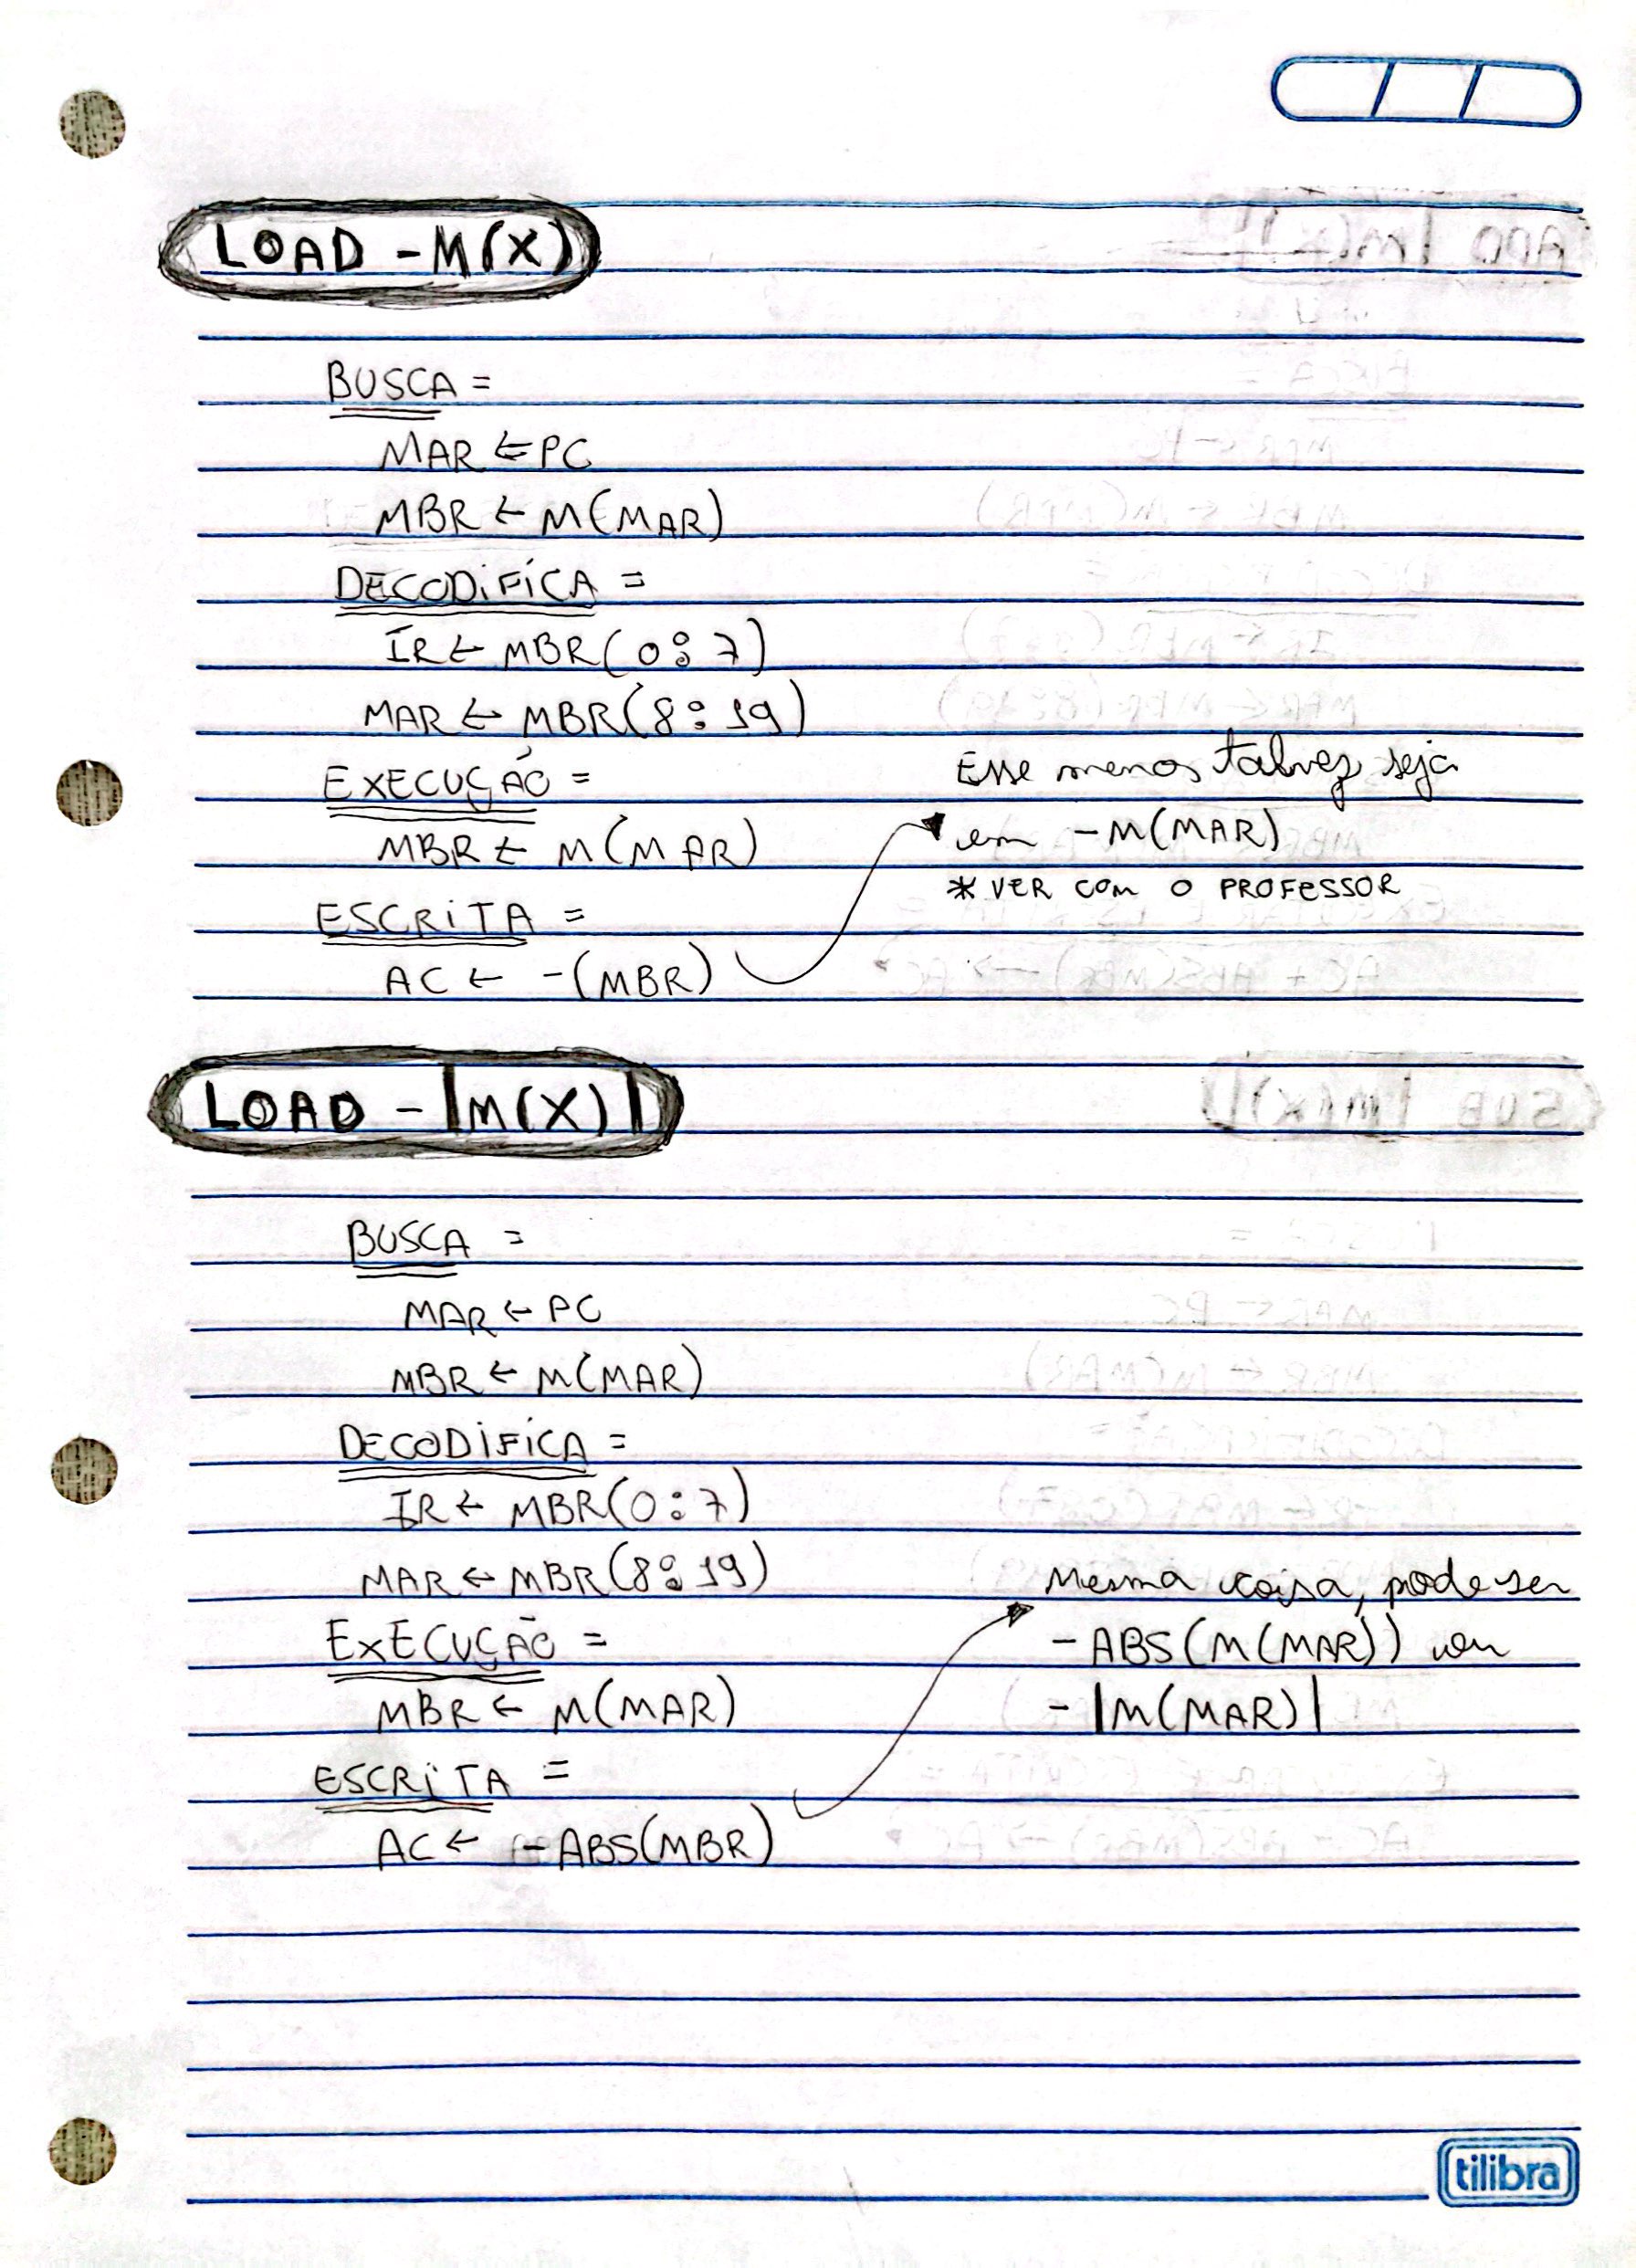 LOAD -M(X)
BUSCA =
MAR ⇐ PC
MBR ← M(MAR)
DECODIFICA =
IR ← MBR(0:7)
MAR ← MBR(8:19)
EXECUÇÃO =
MBR ← M(MAR)
ESCRITA =
AC ← -(MBR)
Esse menos talvez seja
em -M(MAR)
* VER COM O PROFESSOR
LOAD -|M(X)|
BUSCA =
MAR ← PC
MBR ← M(MAR)
DECODIFICA =
IR ← MBR(0:7)
MAR ← MBR(8:19)
EXECUÇÃO =
MBR ← M(MAR)
ESCRITA =
AC ← -ABS(MBR)
Mesma coisa, pode ser
-ABS(M(MAR)) ou
-|M(MAR)|
tilibra